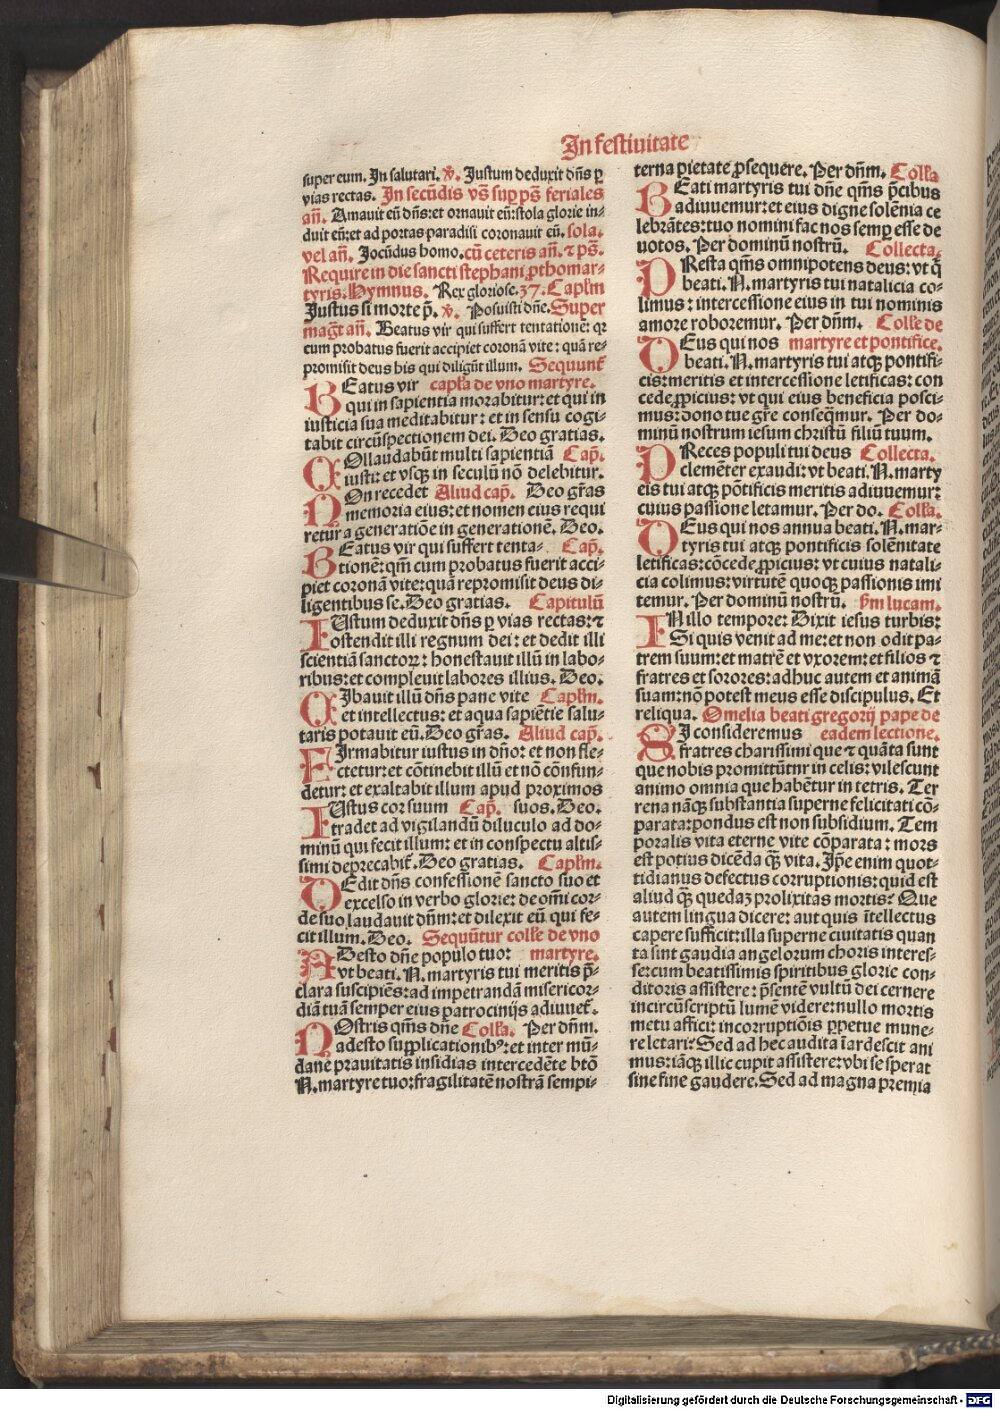 In festiuitate
super eum. In salutari. v̄. Justum deduxit dn̄s ꝑ
vias rectas. In secūdis vs̄ suꝑ ps̄ feriales
an̄. Amauit eū dn̄s: et ornauit eū: stola glorie in-
duit eū: et ad portas paradisi coronauit eū. sola.
vel an̄. Jocūdus homo. cū ceteris an̄. ⁊ ps̄.
Require in die sancti stephani ꝓthomar-
tyris. Hymnus. Rex gloriose. 37. Capl̄m
Justus si morte p̄. v̄. Posuisti dn̄e. Super
maḡt an̄. Beatus vir qui suffert tentationē: qr
cum probatus fuerit accipiet coronā vite: quā re-
promisit deus his qui diligūt illum. Sequunt̄
BEatus vir capl̄a de vno martyre.
qui in sapientia morabitur: et qui in
iusticia sua meditabitur: et in sensu cogi-
tabit circūspectionem dei. Deo gratias.
COllaudabūt multi sapientiā Cap̄.
iusti: et vsq̄ in seculū nō delebitur.
NOn recedet Aliud cap̄. Deo gr̄as
memoria eius: et nomen eius requi
retur a generatiōe in generationē. Deo.
BEatus vir qui suffert tenta- Cap̄.
tionē: qm̄ cum probatus fuerit acci-
piet coronā vite: quā repromisit deus di-
ligentibus se. Deo gratias. Capitulū
IUstum deduxit dn̄s ꝑ vias rectas: ⁊
ostendit illi regnum dei: et dedit illi
scientiā sanctoꝝ: honestauit illū in labo-
ribus: et compleuit labores illius. Deo.
CIbauit illū dn̄s pane vite Capl̄m.
et intellectus: et aqua sapiētie salu-
taris potauit eū. Deo gr̄as. Aliud cap̄.
FIrmabitur iustus in dn̄o: et non fle-
ctetur: et cōtinebit illū et nō cōnfun-
detur: et exaltabit illum apud proximos
IUstus cor suum Cap̄. suos. Deo.
tradet ad vigilandū diluculo ad do-
minū qui fecit illum: et in conspectu altis-
simi deprecabit̄. Deo gratias. Capl̄m.
DEdit dn̄s confessionē sancto suo et
excelso in verbo glorie: de om̄i cor-
de suo laudauit dn̄m: et dilexit eū qui fe-
cit illum. Deo. Sequūtur coll̄e de vno
ADesto dn̄e populo tuo: martyre.
vt beati. N. martyris tui meritis p̄-
clara suscipiēs: ad impetrandā misericor-
diā tuā semper eius patrocinijs adiuuet̄.
NOstris qm̄s dn̄e Coll̄a. Per dn̄m.
adesto supplicationibꝰ: et inter mū-
dane prauitatis insidias intercedēte btō
N. martyre tuo: fragilitatē nostrā sempi-
terna pietate ꝓsequere. Per dn̄m. Coll̄a
BEati martyris tui dn̄e qm̄s p̄cibus
adiuuemur: et eius digne solēnia ce
lebrātes: tuo nomini fac nos semꝑ esse de
uotos. Per dominū nostrū. Collecta.
PResta qm̄s omnipotens deus: vt q̄
beati. N. martyris tui natalicia co-
limus: intercessione eius in tui nominis
amore roboremur. Per dn̄m. Coll̄e de
DEus qui nos martyre et pontifice.
beati. N. martyris tui atq̄ pontifi-
cis: meritis et intercessione letificas: con
cede ꝓpicius: vt qui eius beneficia posci-
mus: dono tue gr̄e conseq̄mur. Per do-
minū nostrum iesum christū filiū tuum.
PReces populi tui deus Collecta.
clemēter exaudi: vt beati. N. marty
ris tui atq̄ pōtificis meritis adiuuemur:
cuius passione letamur. Per do. Coll̄a.
DEus qui nos annua beati. N. mar-
tyris tui atq̄ pontificis solēnitate
letificas: cōcede ꝓpicius: vt cuius natali-
cia colimus: virtutē quoq̄ passionis imi
temur. Per dominū nostrū. s̄m lucam.
IN illo tempore: Dixit iesus turbis:
Si quis venit ad me: et non odit pa-
trem suum: et matrē et vxorem: et filios ⁊
fratres et sorores: adhuc autem et animā
suam: nō potest meus esse discipulus. Et
reliqua. Omelia beati gregorij pape de
SI consideremus eadem lectione.
fratres charissimi que ⁊ quāta sunt
que nobis promittūtur in celis: vilescunt
animo omnia que habētur in terris. Ter
rena nāq̄ substantia superne felicitati cō-
parata: pondus est non subsidium. Tem
poralis vita eterne vite cōparata: mors
est potius dicēda q̄ vita. Ip̄e enim quot-
tidianus defectus corruptionis: quid est
aliud q̄ quedaꝫ prolixitas mortis? Que
autem lingua dicere: aut quis ītellectus
capere sufficit: illa superne ciuitatis quan
ta sint gaudia angelorum choris interes-
se: cum beatissimis spiritibus glorie con-
ditoris assistere: p̄sentē vultū dei cernere
incircūscriptū lumē videre: nullo mortis
metu affici: incorruptiōis ꝑpetue mune-
re letari? Sed ad hec audita īardescit ani
mus: iāq̄ illic cupit assistere: vbi se sperat
sine fine gaudere. Sed ad magna premia
Digitalisierung gefördert durch die Deutsche Forschungsgemeinschaft - DFG